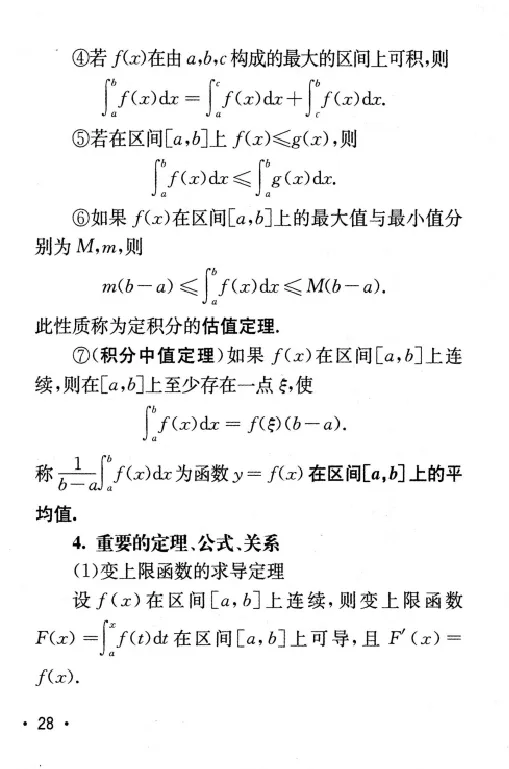 ④若 f(x)在由 a,b,c 构成的最大的区间上可积,则
∫_a^b f(x)dx = ∫_a^c f(x)dx + ∫_c^b f(x)dx.
⑤若在区间[a,b]上 f(x)≤g(x),则
∫_a^b f(x)dx ≤ ∫_a^b g(x)dx.
⑥如果 f(x)在区间[a,b]上的最大值与最小值分
别为 M,m,则
m(b-a) ≤ ∫_a^b f(x)dx ≤ M(b-a).
此性质称为定积分的估值定理.
⑦(积分中值定理)如果 f(x)在区间[a,b]上连
续,则在[a,b]上至少存在一点 ξ,使
∫_a^b f(x)dx = f(ξ)(b-a).
称 1/(b-a) ∫_a^b f(x)dx 为函数 y = f(x) 在区间[a,b]上的平
均值.
4. 重要的定理、公式、关系
(1)变上限函数的求导定理
设 f(x)在区间[a,b]上连续,则变上限函数
F(x) = ∫_a^x f(t)dt 在区间[a,b]上可导,且 F′(x) =
f(x).
· 28 ·